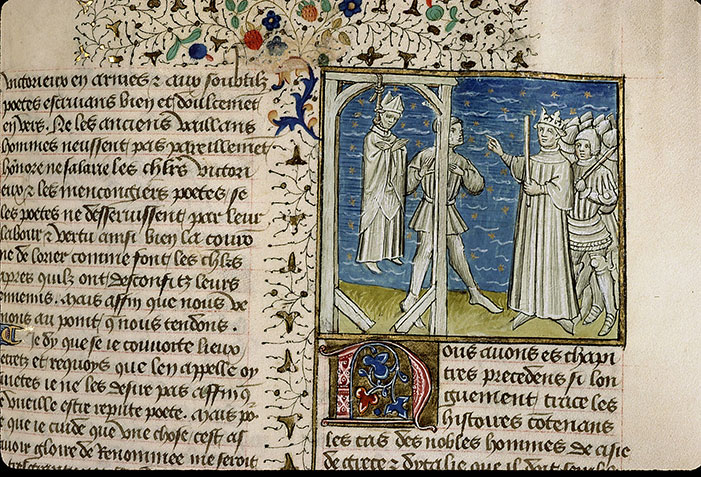 victorieux en armes ⁊ aux soubtilz
poetes escrivans bien et doulcemēt
en vers. Ne les anciens vaillans
hommes neussent pas pareillemēt
honnore ne salarie les chlrs victori
eux ⁊ les menconciers poetes / se
les poetes ne desservissent par leur
labour ⁊ vertu ainsi bien la couro
ne de lorier comme font les chlrs
apres quilz ont desconfitz leurs
ennemis. Mais affin que nous ve
nons au point q̄ nous tendons.
Je dy que se je couvoite lieux
secretz et requoys que len appelle oy
sivetes ie ne les desire pas affin q̄
ie vueille estre repute poete. Mais po
ce que je cuide que une chose / cest as
avoir gloire de Renommee me seroit
Nous avons es chapi
tres precedens si lon
guement / trace les
histoires cōtenans
les cas des nobles hommes de asie
de grece ⁊ dytalie que il doit